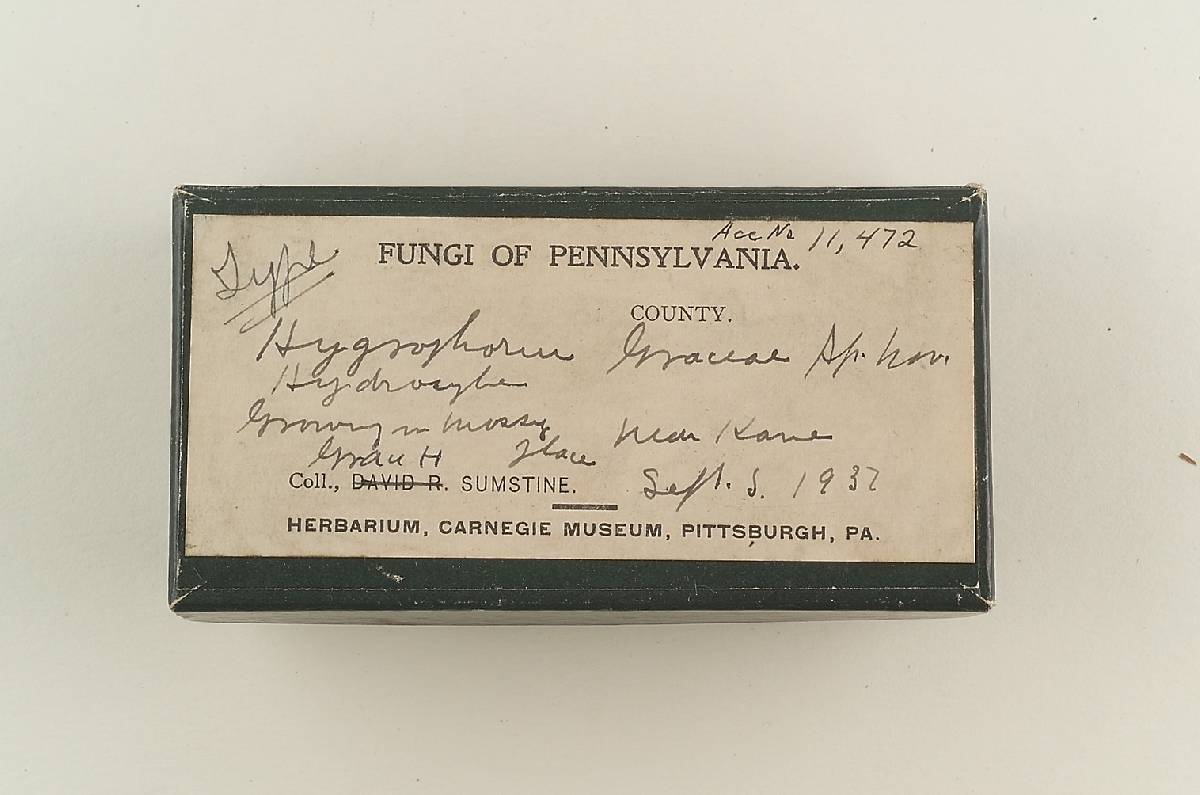 Type
Acc No 11,472
FUNGI OF PENNSYLVANIA.
COUNTY.
Hygrophorus Graceae Sp. nov.
Hydrocybe
Growing in mossy place near Kane
Grace H
Coll., DAVID R. SUMSTINE. Sept. 5. 1937
HERBARIUM, CARNEGIE MUSEUM, PITTSBURGH, PA.